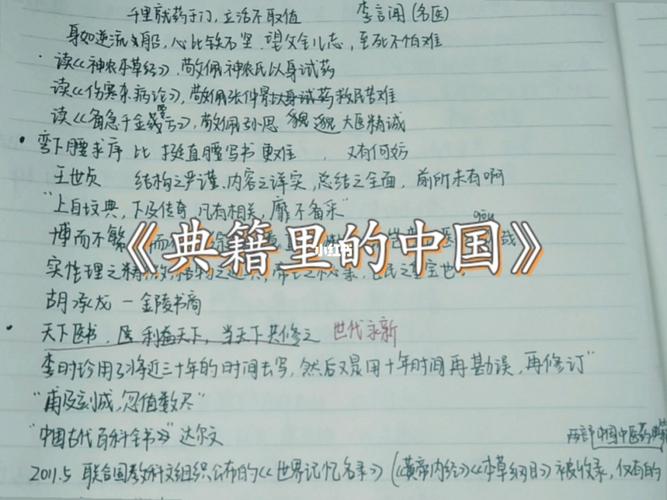 千里就药于门，立活不取值 李言闻（名医）
身如逆流船，心比铁石坚，望父全儿志，至死不怕难
读《神农本草经》，敬佩神农氏以身试药
读《伤寒杂病论》，敬佩张仲景救民苦难
读《备急千金要方》，敬佩孙思邈 大医精诚
弯下腰求序 比 挺直腰写书 更难， 又有何妨
王世贞 结构之严谨，内容之详实，总结之全面，前所未有啊
“上自坟典，下及传奇，凡有相关，靡不备采”
博而不繁
《典籍里的中国》
小红书
实性理之精微，格物之通典，帝王之秘录，臣民之重宝也
胡承龙 — 金陵书商
天下医书，医利布天下，当天下共修之 世代求新
李时珍用了将近三十年的时间去写，然后又是用十年时间再勘误，再修订”
“甫及刻成，忽值数尽”
“中国古代百科全书》” 达尔文
两部中国中医药典籍
2011.5 联合国教科文组织公布的《世界记忆名录》（《黄帝内经》《本草纲目》被收录，仅有的